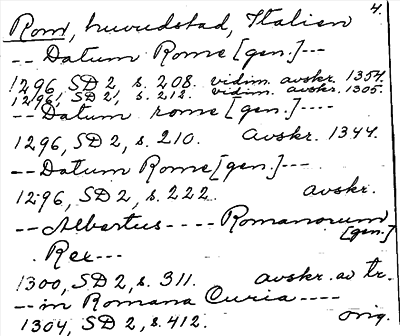 4.
Rom, huvudstad, Italien
-- Datum Rome [gen.] ---
1296, SD 2, s. 208. vidim. avskr. 1354.
1296, SD 2, s. 212. vidim. avskr. 1305.
-- Datum rome [gen.] ----
1296, SD 2, s. 210. avskr. 1344.
-- Datum Rome [gen.] ---
1296, SD 2, s. 222 avskr.
-- Albertus ---- Romanorum
[gen.]
Rex ---
1300, SD 2, s. 311. avskr. av tr.
-- in Romana Curia ----
1304, SD 2, s. 412. orig.